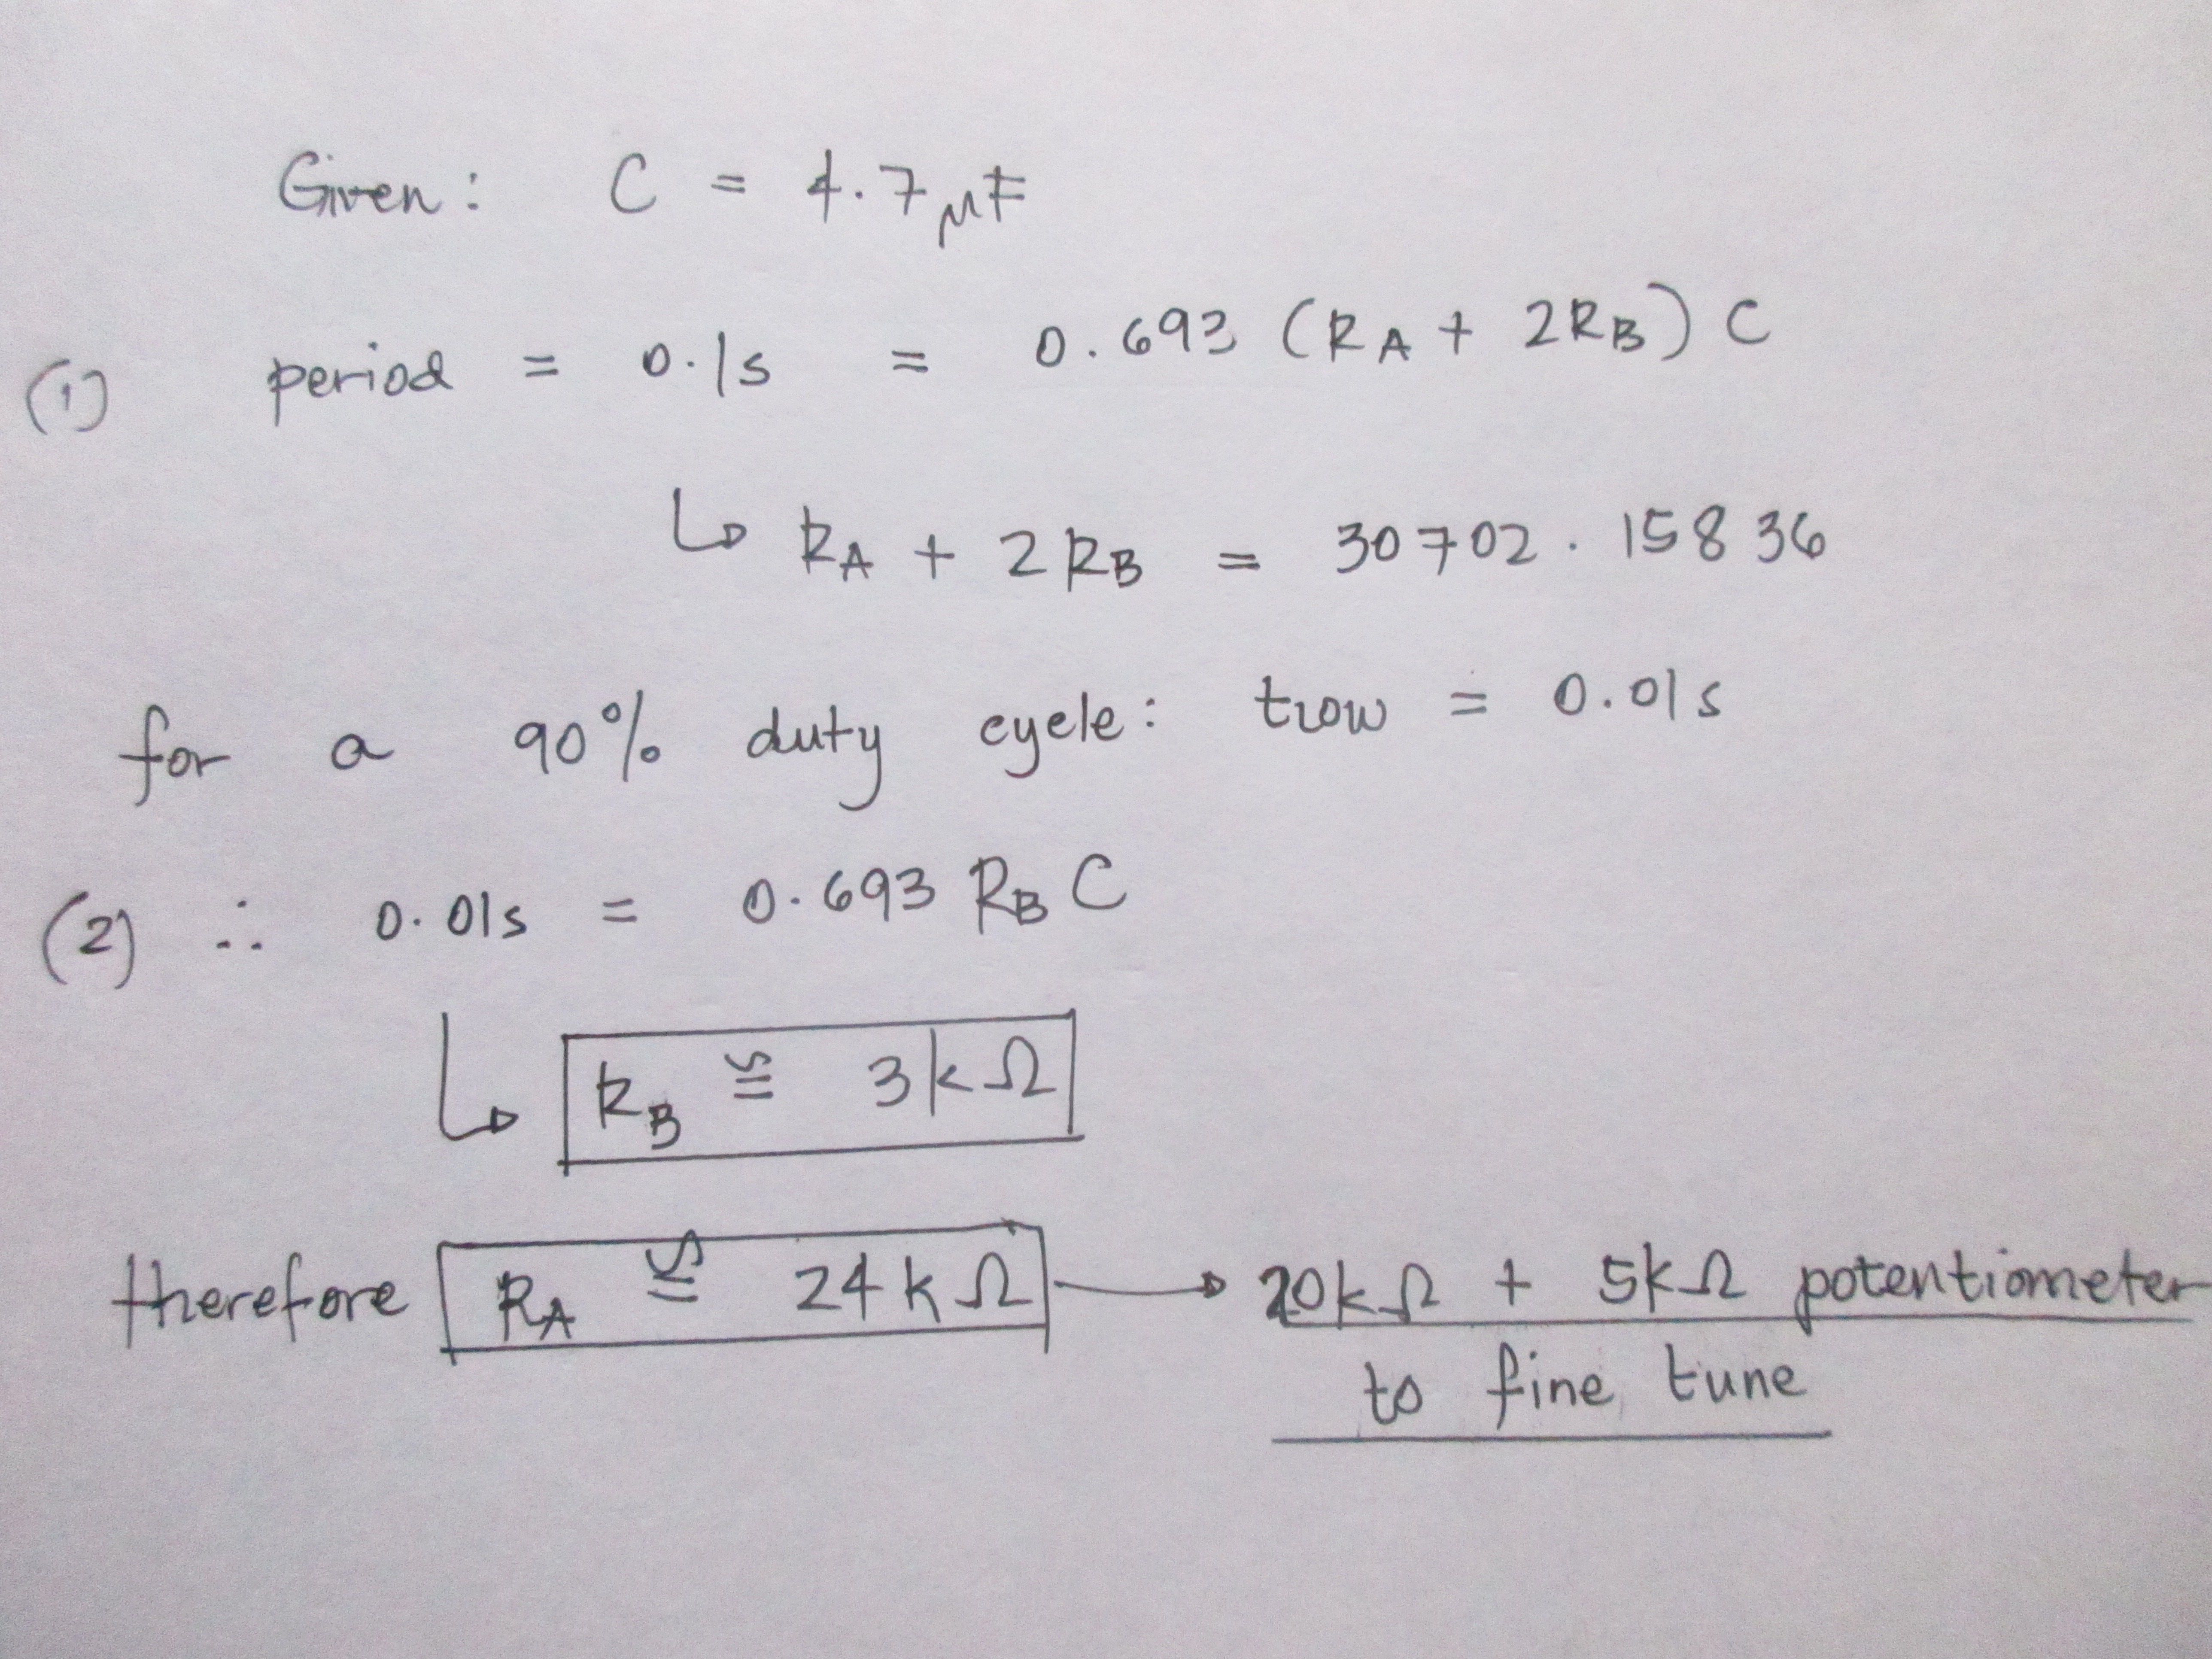 Given: C = 4.7μF
(1) period = 0.1s = 0.693 (RA + 2RB) C
↳ RA + 2RB = 30702.15836
for a 90% duty cycle: tLOW = 0.01s
(2) ∴ 0.01s = 0.693 RB C
↳ RB ≅ 3kΩ
therefore RA ≅ 24kΩ → 20kΩ + 5kΩ potentiometer
to fine tune